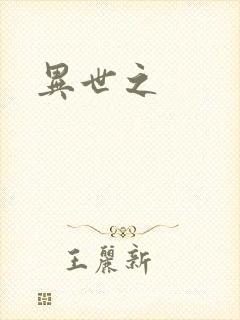 異世之
王麗新